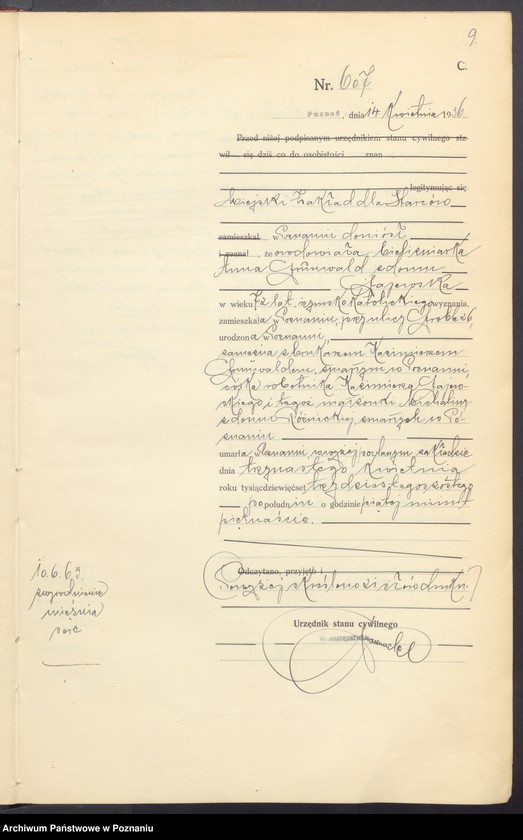 9.
C.
Nr. 607
Poznań, dnia 14 Kwietnia 1936
Przed niżej podpisanym urzędnikiem stanu cywilnego sta-
wił się dziś co do osobistości znan
legitymując się
Miejski Zakład dla Starców
zamieszkał w Poznaniu doniósł
i zeznał, że owdowiała bieliźniarka
Anna Grünwald z domu
Gajewska
w wieku 72 lat, rzymskokatolickiego wyznania,
zamieszkała w Poznaniu, przy ulicy Grobla 26,
urodzona w Poznaniu,
zamężna z brukarzem Kazimierzem
Grünwaldem, zmarłym w Poznaniu,
córka robotnika Kazimierza Gajew-
skiego i tegoż małżonki Michaliny
z domu Różnickiej zmarłych w Po-
znaniu
umarła w Poznaniu, w wyżej podanym zakładzie
dnia trzynastego Kwietnia
roku tysiącdziewięćset trzydziestego szóstego
po południu o godzinie piątej minut
piętnaście.
Odczytano, przyjęto i
Powyżej skreślono 21 słów druku.
Urzędnik stanu cywilnego
10.6.6 g.
zwyrodnienie
mięśnia
serc
Archiwum Państwowe w Poznaniu